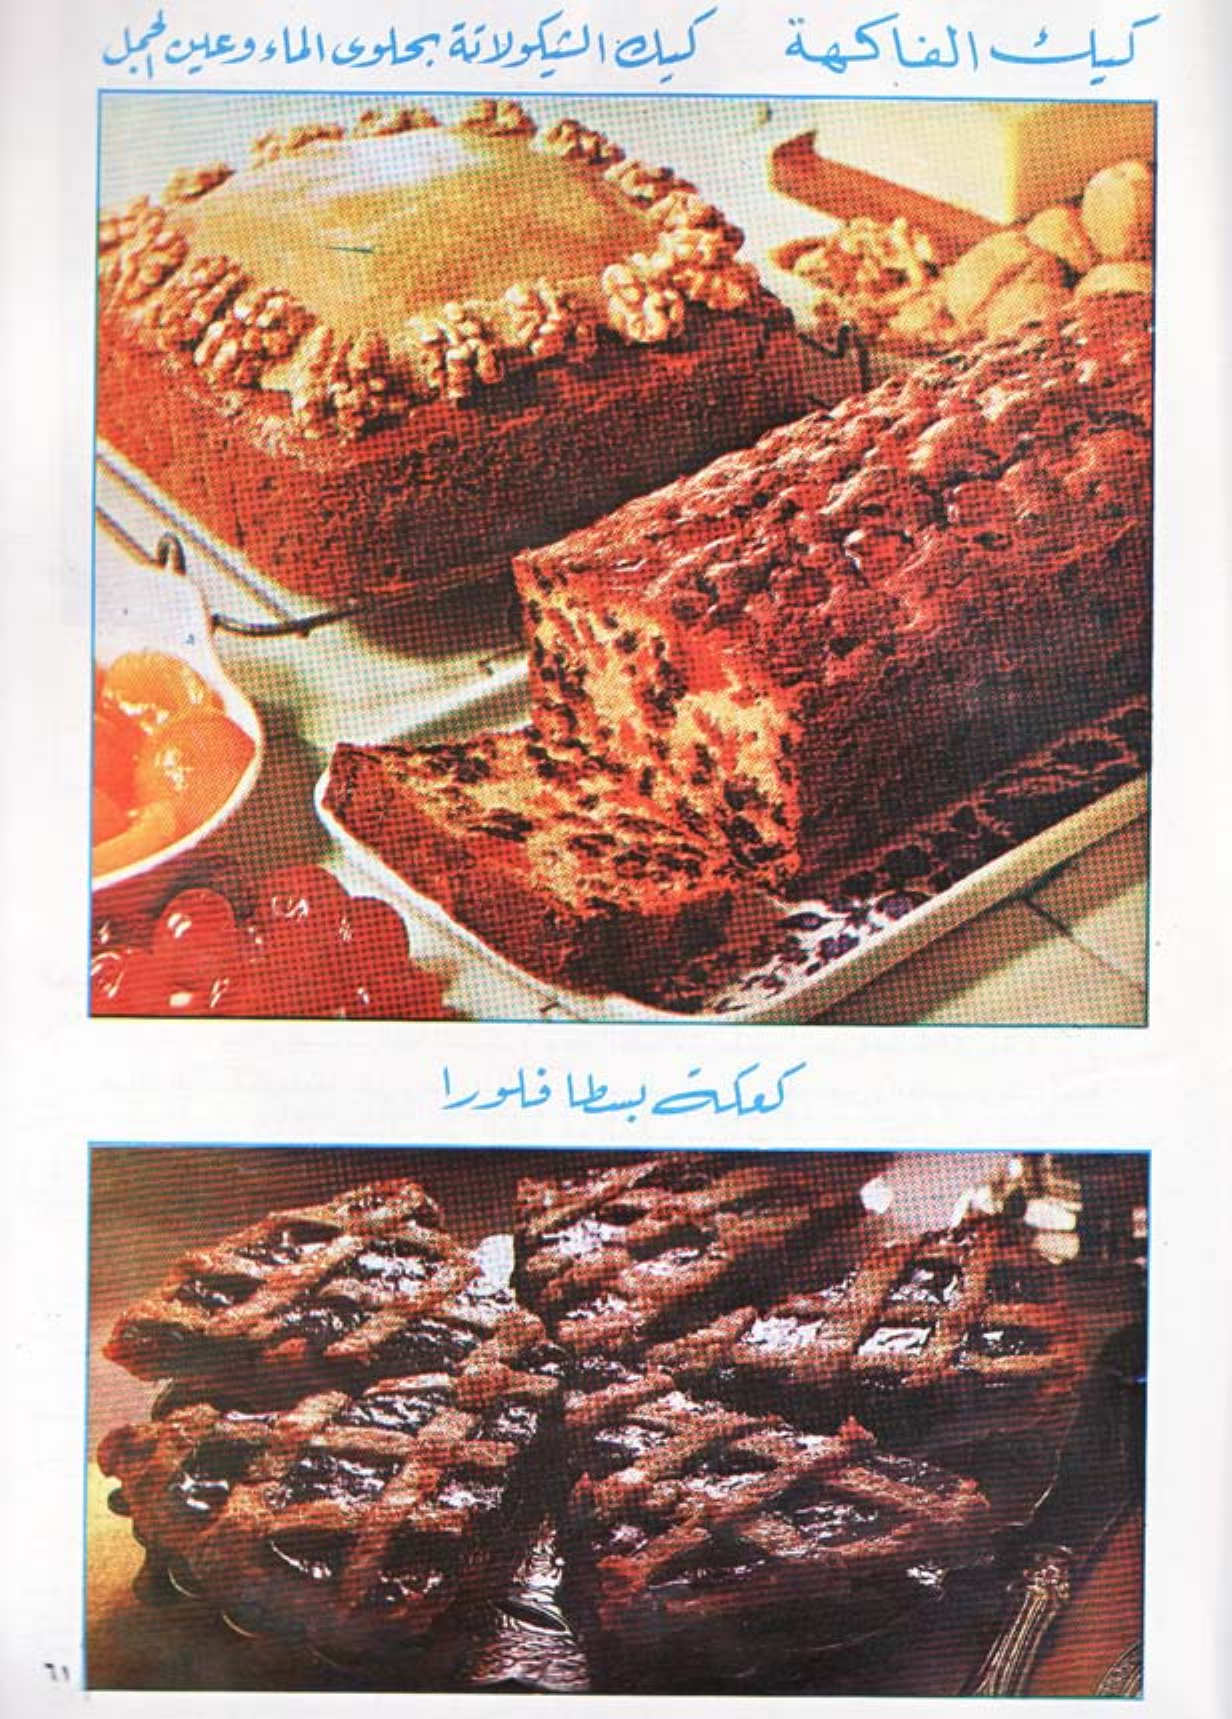 كيك الفاكهة
كيك الشيكولاتة بحلوى الماء وعين الجمل
كعكة بسطا فلورا
٦١